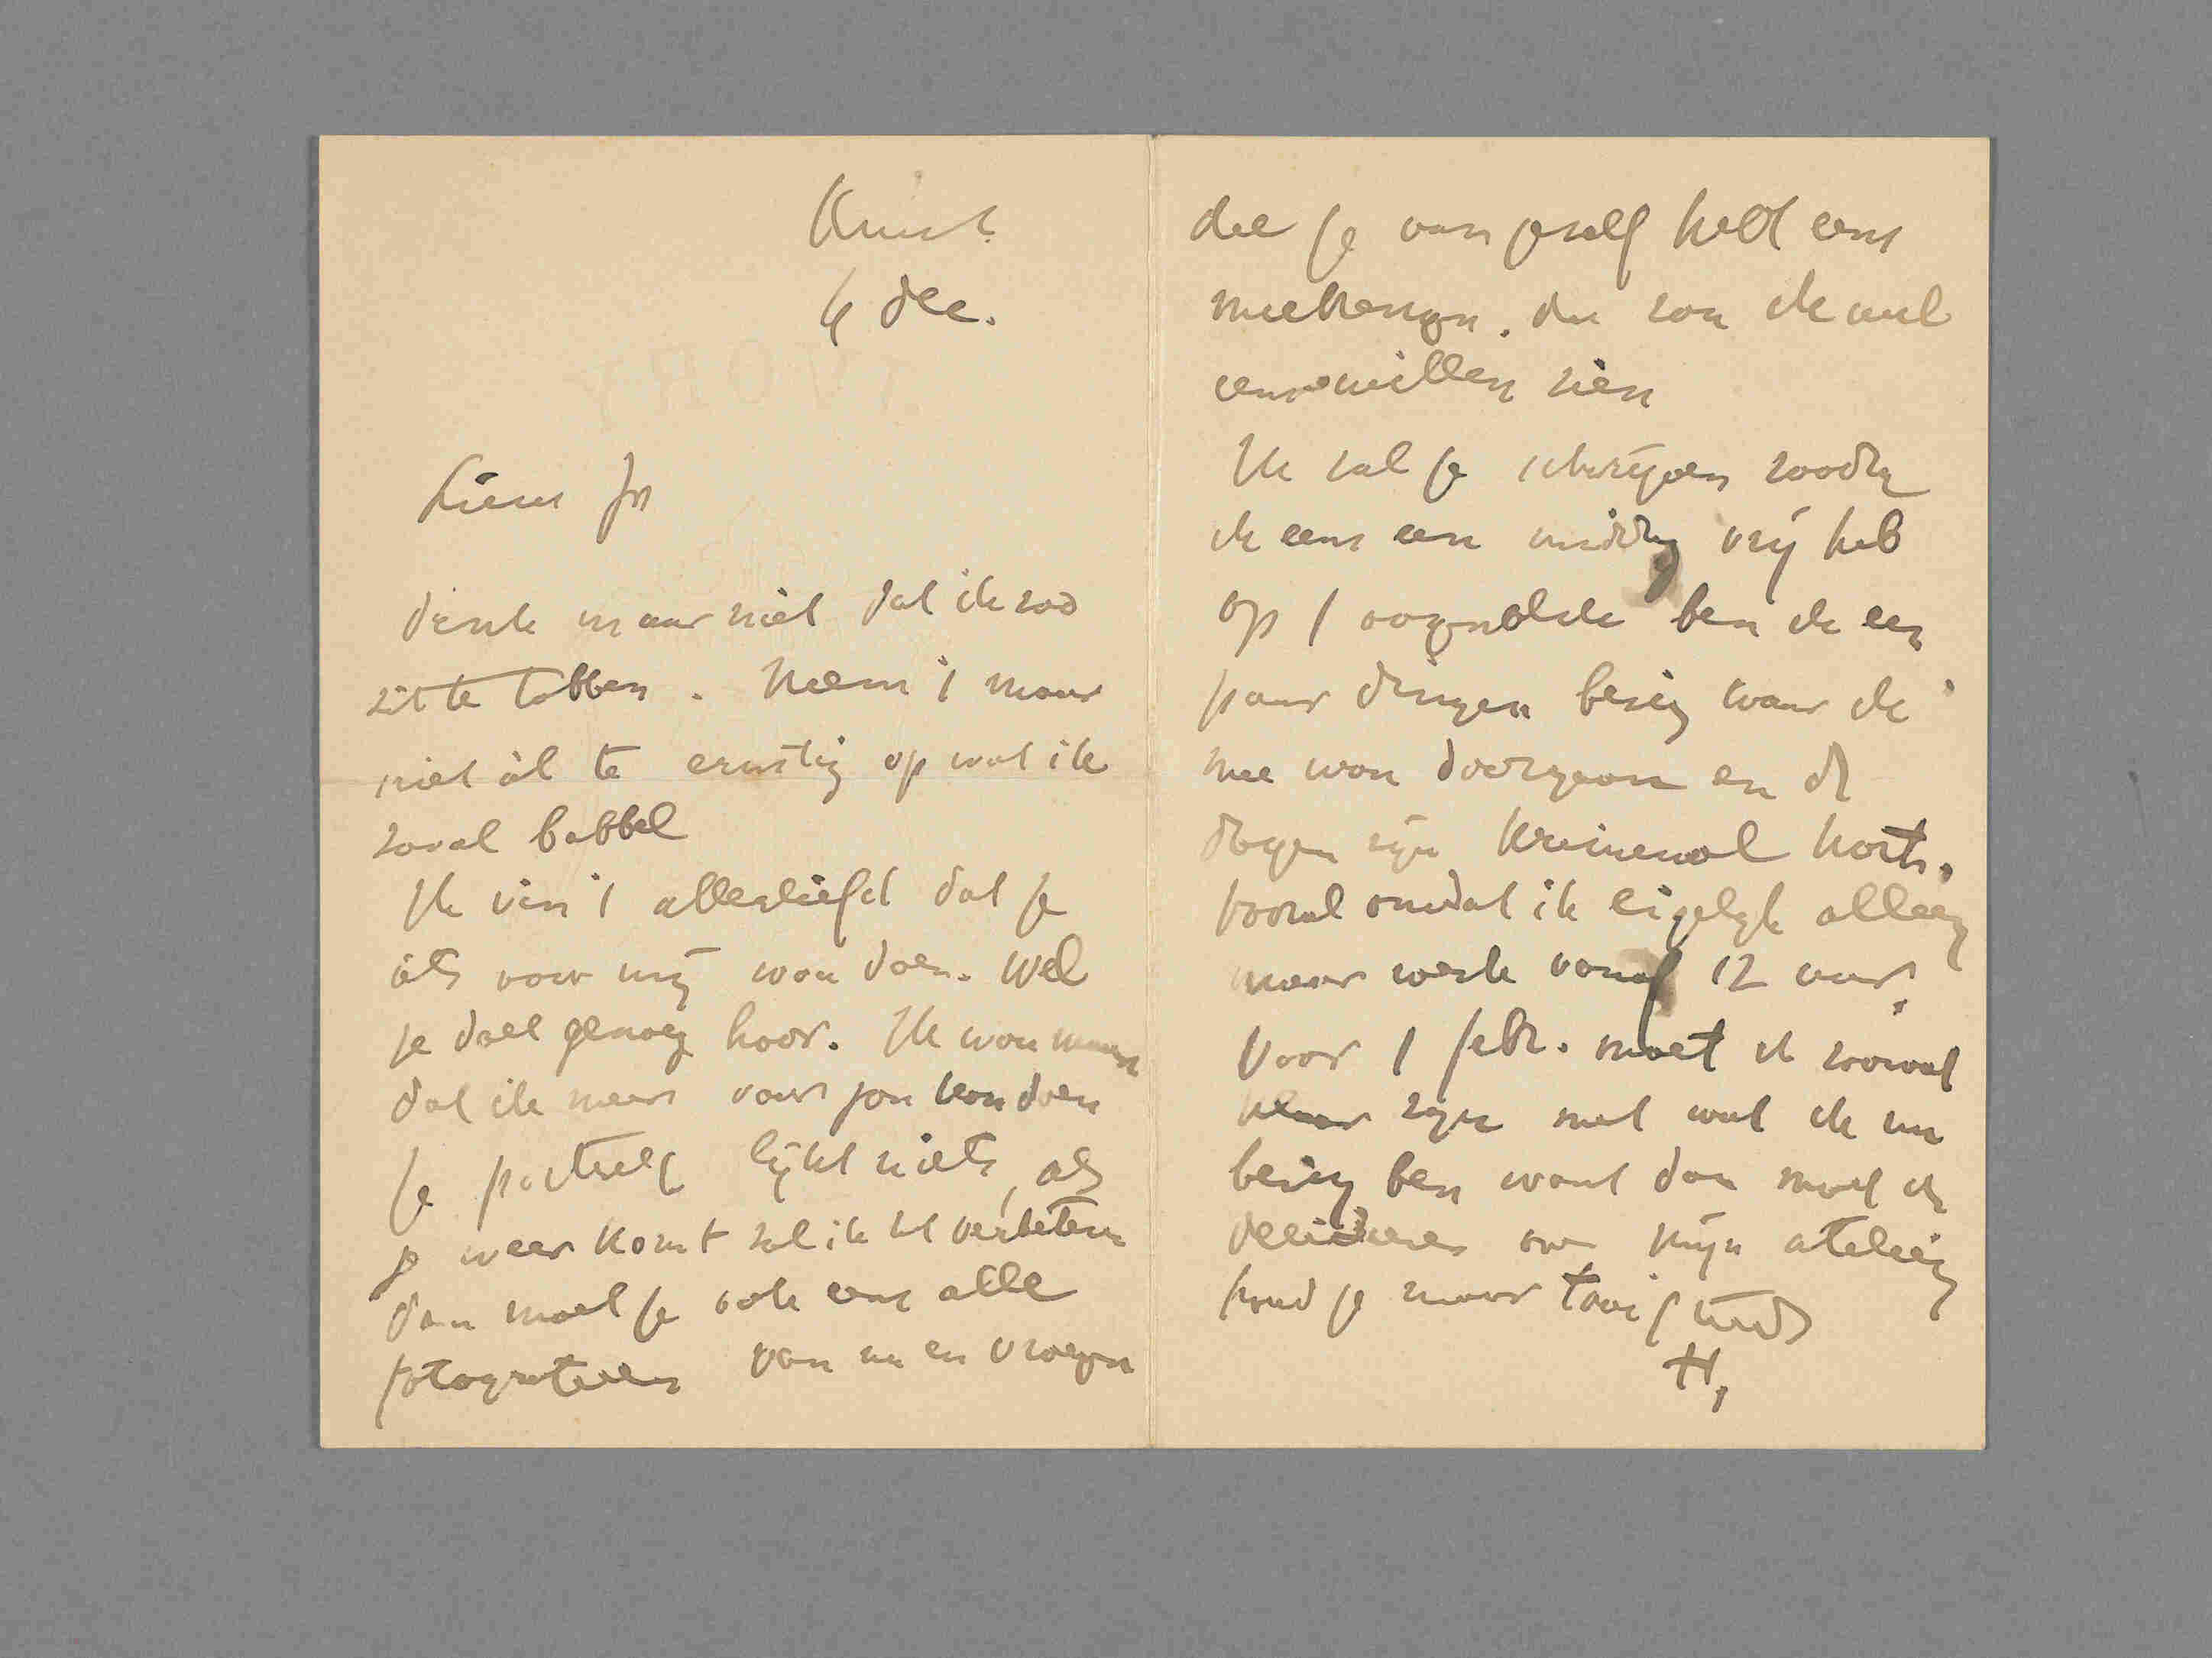 Kunst.
4 dec.
Lieve Jo
denk maar niet dat ik zoo
zit te tobben. Neem 't maar
niet àl te ernstig op wat ik
zoval babbel
Ik vin 't allerliefst dat je
iets voor mij wou doen. Wel
je doet genoeg hoor. Ik wou maar
dat ik meer voor jou kon doen
Je portret lijkt niets, als
je weer komt zal ik 't verbeteren
dan moet je ook eens alle
fotografieën van nu en vroeger
die je van jeself hebt eens
meebrengen. die zou ik wel
eens willen zien
Ik zal je schrijven zoodra
ik eens een middag vrij heb
op 't oogenblik ben ik een
paar dingen bezig waar ik
mee wou doorgaan en de
dagen zijn krimineel kort.
vooral omdat ik eigelijk alleen
maar werk vanaf 12 uur.
Voor 1 febr. moet ik zoowat
klaar zijn met wat ik nu
bezig ben want dan moet ik
decideeren over mijn atelier
houd je maar taai
H.